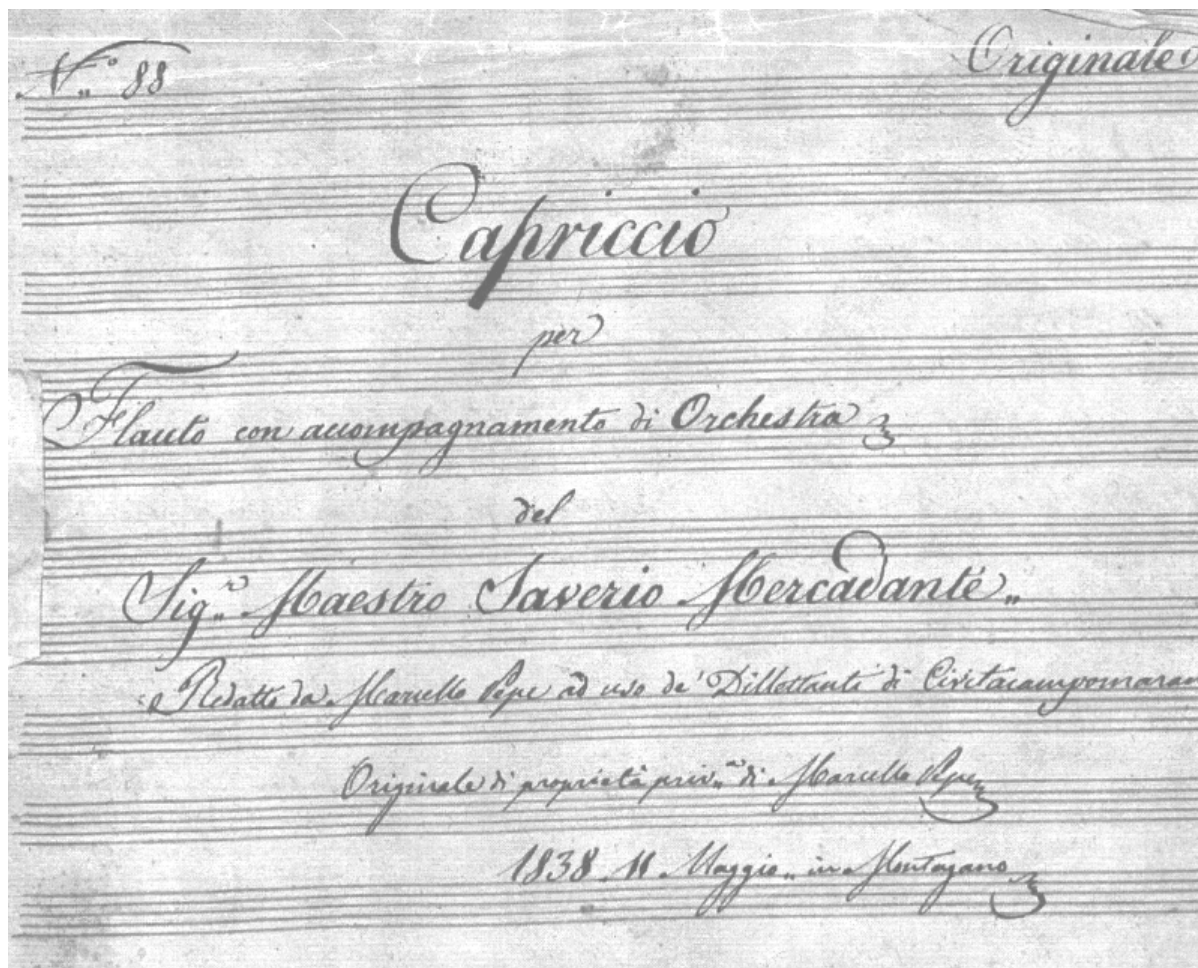 N.º 88
Originale
Capriccio
per
Flauto con accompagnamento di Orchestra
del
Sig.r Maestro Saverio Mercadante
Redatto da Marcello Pepe ad uso de' Dillettanti di Civitacampomaran
Originale di proprietà priv.ta di Marcello Pepe
1838 11 Maggio in Montagano